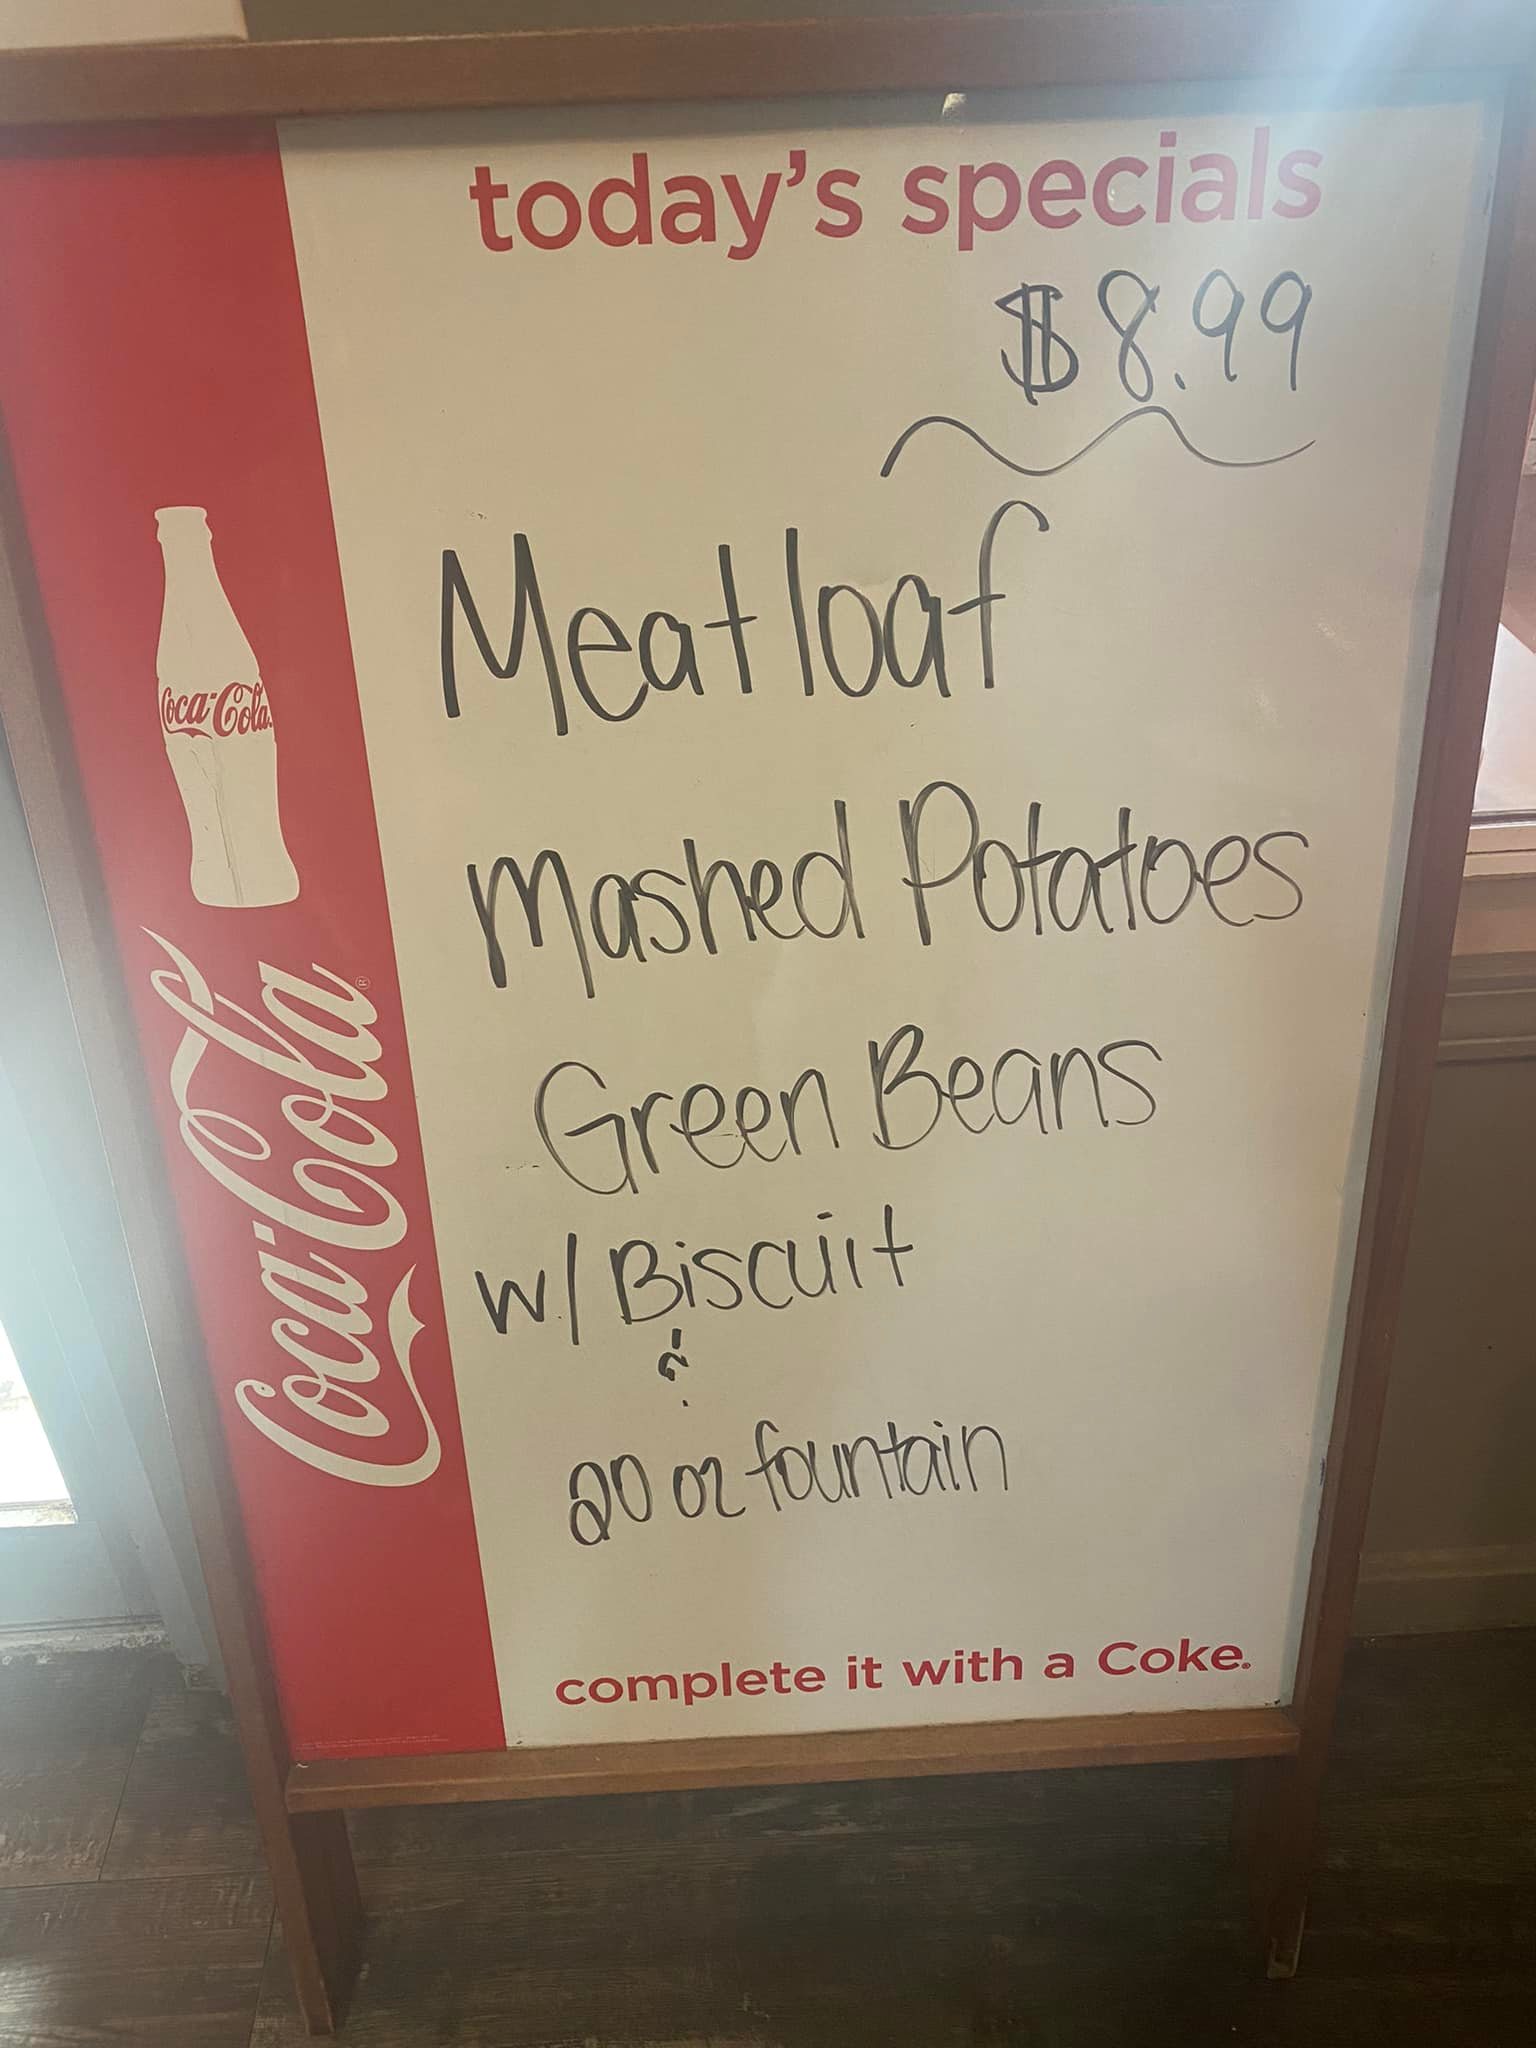 today's specials
$8.99
Meatloaf
Mashed Potatoes
Green Beans
w/ Biscuit
&
20 oz fountain
complete it with a Coke.
Coca-Cola
Coca-Cola®